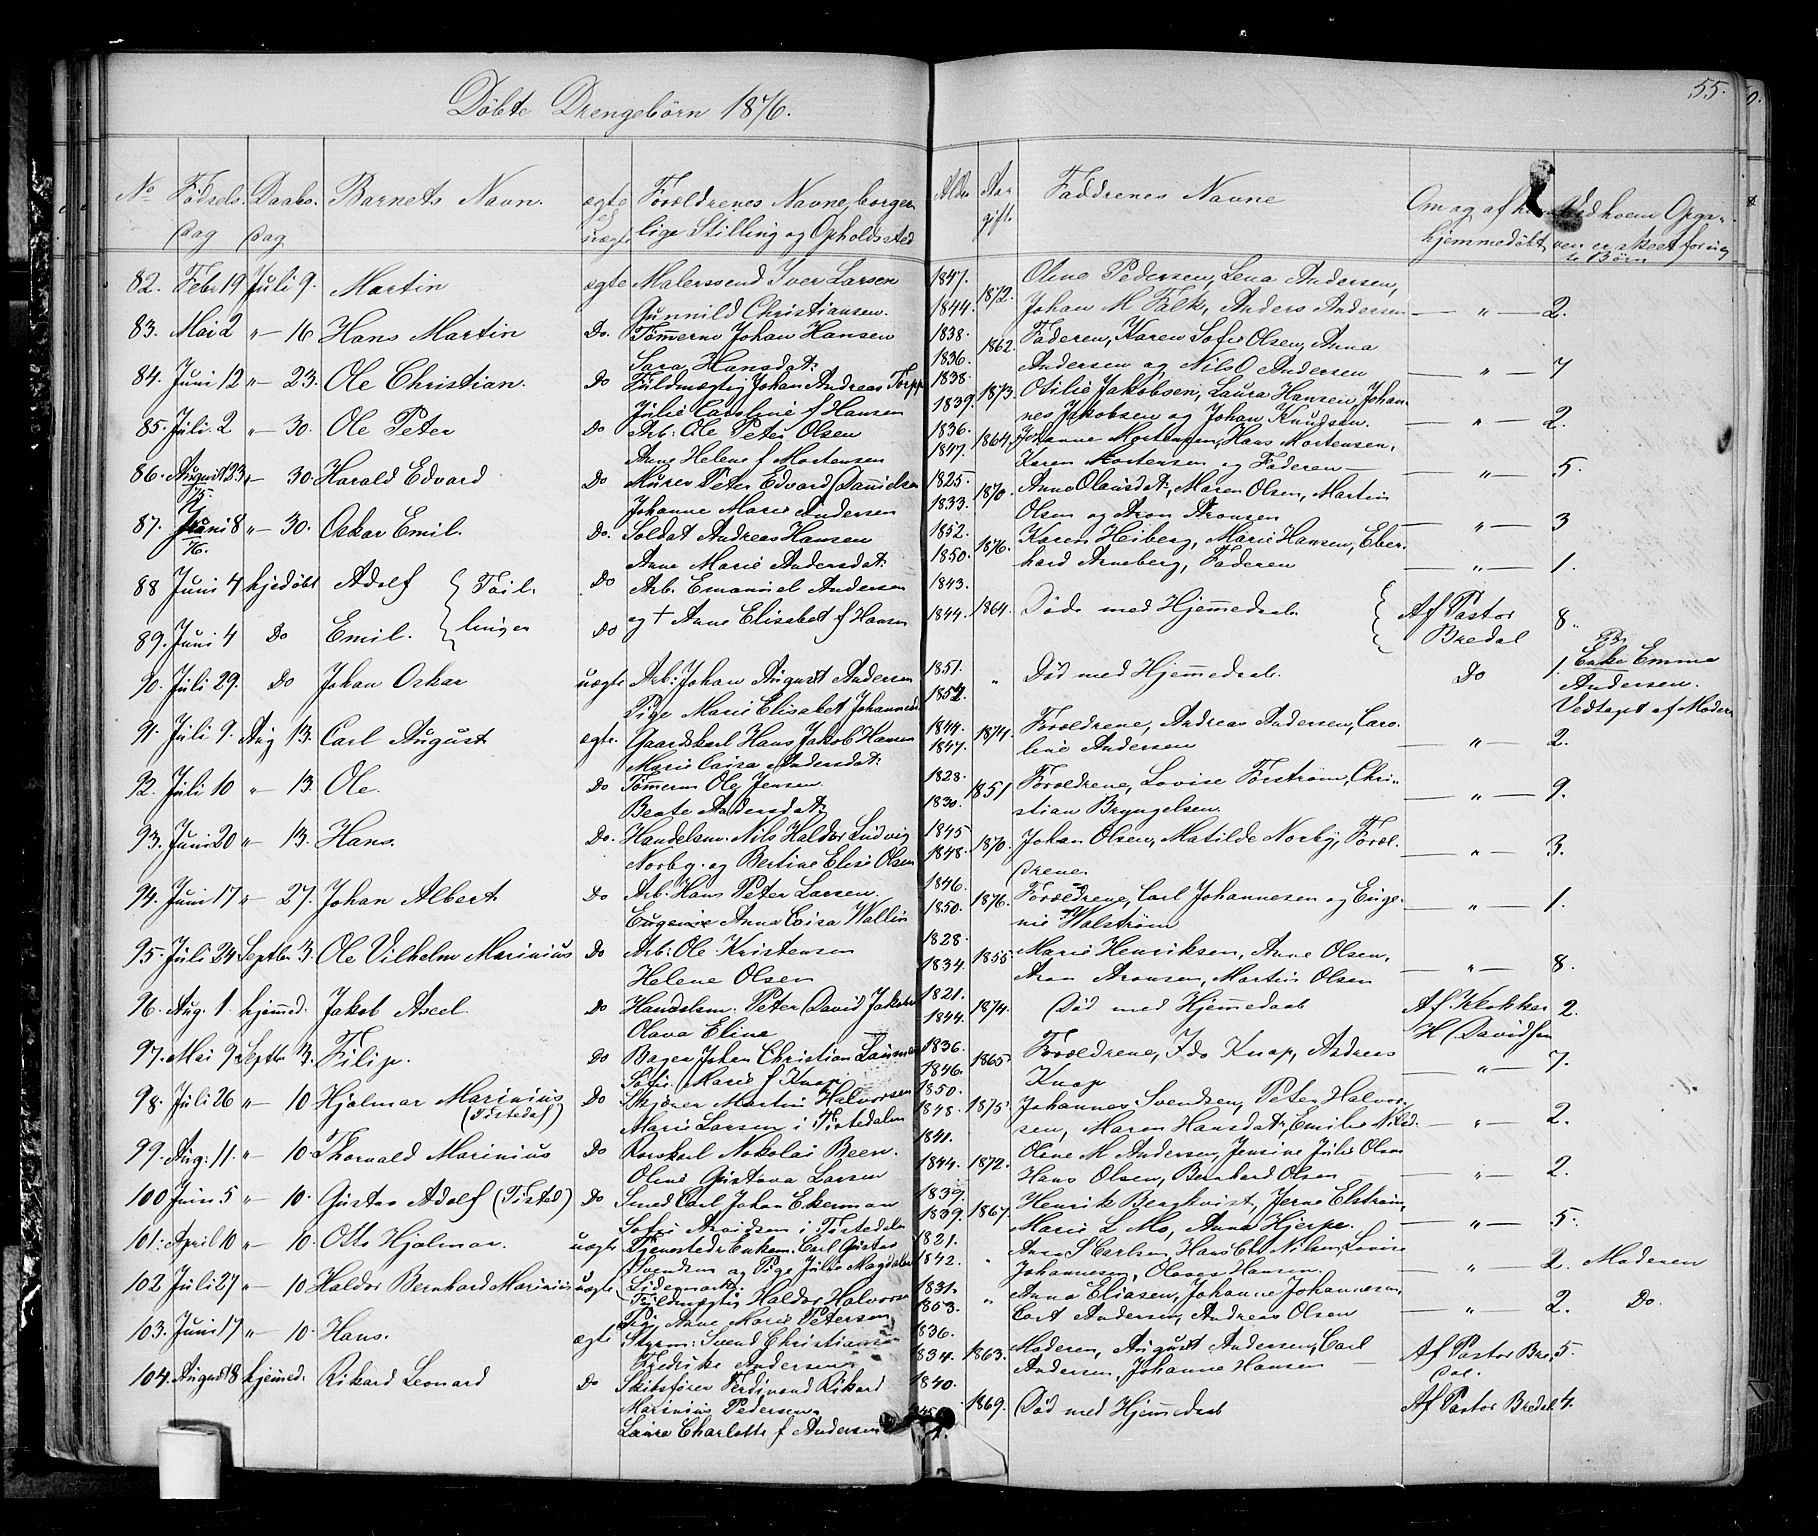 Døbte Drengebørn 1876.
55.
No Fødsels Dag Daabs Dag Barnets Navn. ægte el uægte Forældrenes Navne, borgerlige Stilling og Opholdssted Alder Aar gift. Faddrenes Navne Om og af hvem hjemmedøbt Ved hvem Opgaven er skeet for uægte Børn
82. Febr 19 Juli 9. Martin ægte Malersvend Iver Larsen 1847. 1872. Oline Pedersen, Lena Andersen,
Gunnild Christiansen. 1844. Johan M Falk, Anders Andersen — " — 2.
83. Mai 2 " - 16 Hans Martin Do. Tømmerm Johan Hansen 1838. 1862. Faderen, Karen Sofie Olsen, Anna
Sara Hansdat: 1836. Andersen og Nils O Andersen — " — 7
84. Juni 12 " - 23. Ole Christian. Do Fuldmægtig Johan Andreas Torpp 1838. 1873. Otilie Jakobsen, Laura Hansen, Johan-
Julie Caroline f Hansen 1839. nes Jakobsen og Johan Knudsen. — " — 2.
85. Juli 2 " - 30. Ole Peter Do Arb: Ole Peter Olsen 1836. 1864. Johanne Mortensen, Hans Mortensen,
Anne Helene f Mortensen 1847. Karen Mortensen og Faderen — " — 5.
86. August 23 75 " - 30. Harald Edvard Do Murer Peter Edvard Danielsen 1825. 1870. Anne Olausdat:, Maren Olsen, Martin
Johanne Marie Andersen 1833. Olsen og Aron Aronsen — " — 3
87. Juni 8 76. " - 30. Oskar Emil. Do. Soldat Andreas Hansen 1852. 1876. Karen Heiberg, Marie Hansen, Eber-
Anne Marie Andersdat: 1850. hard Arneberg, Faderen — " — 1.
88 Juni 4 hjedøbt Adolf { Tvil- Do Arb: Emanuel Andersen 1843. 1864. Døde med Hjemmedaab. Af Pastor 8.
89. Juni 4 Do Emil. { linger Do og † Anne Elisabet f Hansen 1844. Bredal
90. Juli 29. Do Johan Oskar uægte Arb: Johan August Andersen 1851. " Død med Hjemmedaab. Do 1. Enke Emma
Pige Marie Elisabet Johannesd 1852. Andersen.
Vedtaget af Moderen
91. Juli 9. Aug 13. Carl August ægte. Gaardskarl Hans Jakob Hansen 1844. 1874. Forældrene, Andreas Andersen, Caro-
Marie Caisa Andersdat: 1847. line Andersen — " — 2.
92. Juli 10 " - 13. Ole. Do Tømmerm Ole Jensen 1828. 1851 Forældrene, Lovise Forstrøm, Chri-
Beate Andersdat: 1830. stian Bryngelsen. — " — 9.
93. Juni 20 " 13. Hans. Do. Handelsm: Nils Haldor Ludvig 1845 1870. Johan Olsen, Matilde Norby, Foræl-
Norby. og Bertine Elise Olsen 1848. drene — " — 3.
94. Juni 17 " - 27. Johan Albert Do Arb: Hans Peter Larsen. 1846. 1876. Forældrene, Carl Johannesen og Euge-
Eugenie Anna Caisa Wallin 1850. nie Walstrøm — " — 1.
95. Juli 24 Septbr 3. Ole Vilhelm Marinius Do Arb: Ole Kristensen 1828. 1855. Marie Henriksen, Anne Olsen,
Helene Olsen 1834. Aron Aronsen, Martin Olsen — " — 8.
96. Aug. 1. hjemmed. Jakob Axel. Do Handelsm: Peter David Jakobs 1821. 1874. Død med Hjemmedaab Af Klokker 2.
Olava Eline 1844. H Davidsen
97. Mai 9 Septbr 3. Filip. Do Bager Johan Christian 1836. 1865. Forældrene, Ida Knap, Andreas
Sofie Marie f Knap 1846. Knap — " — 7.
98. Juli 26 " - 10 Hjalmar Marinius Do Skjærer Martin Halvorsen 1850. 1875. Johannes Svendsen, Peter Halvor-
(Tistedal) Marie Larsen i Tistedalen 1848. sen, Maren Hansdat:, Emilie Nilsd. — " — 2.
99. Aug: 11. " - 10. Thorvald Marinius Do Rorskarl Nokolai Been. 1841. 1872. Olene M Andersen, Jensine Julie Olsen
Oline Gustava Larsen 1844. Hans Olsen, Bernhard Olsen — " — 2.
100 Juni 5 " - 10. Gustav Adolf (Tisted) Do Smed Carl Johan Ekerman 1839. 1867. Henrik Bergkvist, Jerne Elstrøm,
Sofie Arvidsen i Tistedalen 1839. Marie L Mo, Anna Hjerpe. — " — 5.
101. April 10 " - 10. Otto Hjalmar. uægte Tjenestedr Enkem. Carl Gustav 1821. " Ane S Carlsen, Hans Chr Nilsen, Lovise
Svendsen og Pige Julie Magdalene 1842. Johannesen, Olaves Hansen. — " — 2. Moderen
102 Juli 27 " - 10 Haldor Bernhard Marinius uægte Fuldmægtig Haldor Halvorsen 1831. " Anna Eliasen, Johanne Johannesen,
Pig. Anne Marie Petersen 1853. Carl Andersen, Andreas Olsen — " — 2. Do.
103. Juni 17 " - 10. Hans. ægte Styrm: Svend Christiansen 1836. 1863. Moderen, August Andersen, Carl Af Pastor Bre- 5.
Fredrike Andersen 1834. Andersen, Johanne Hansen dal.
104. August 8 hjemmed. Rikard Leonard Do Skibsfører Ferdinand Rikard 1840. 1869. Død med Hjemmedaab Af Pastor Bredal 4.
Marinius Pedersen.
Laura Charlotte f Andersen